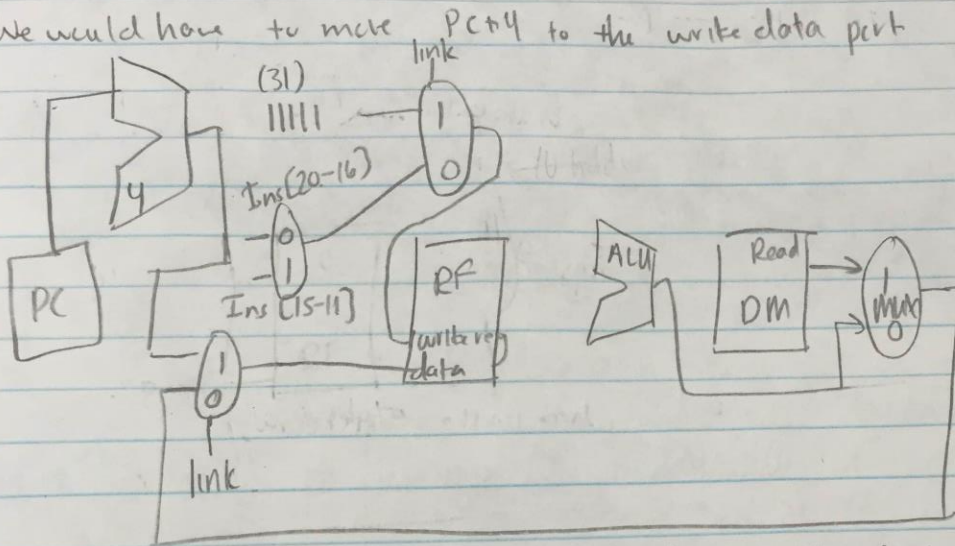 We would have to move PC+4 to the write data port
link
(31)
11111
1
0
4
Ins[20-16]
0
1
Ins[15-11]
PC
RF
write reg
data
ALU
Read
DM
1
mux
0
1
0
link